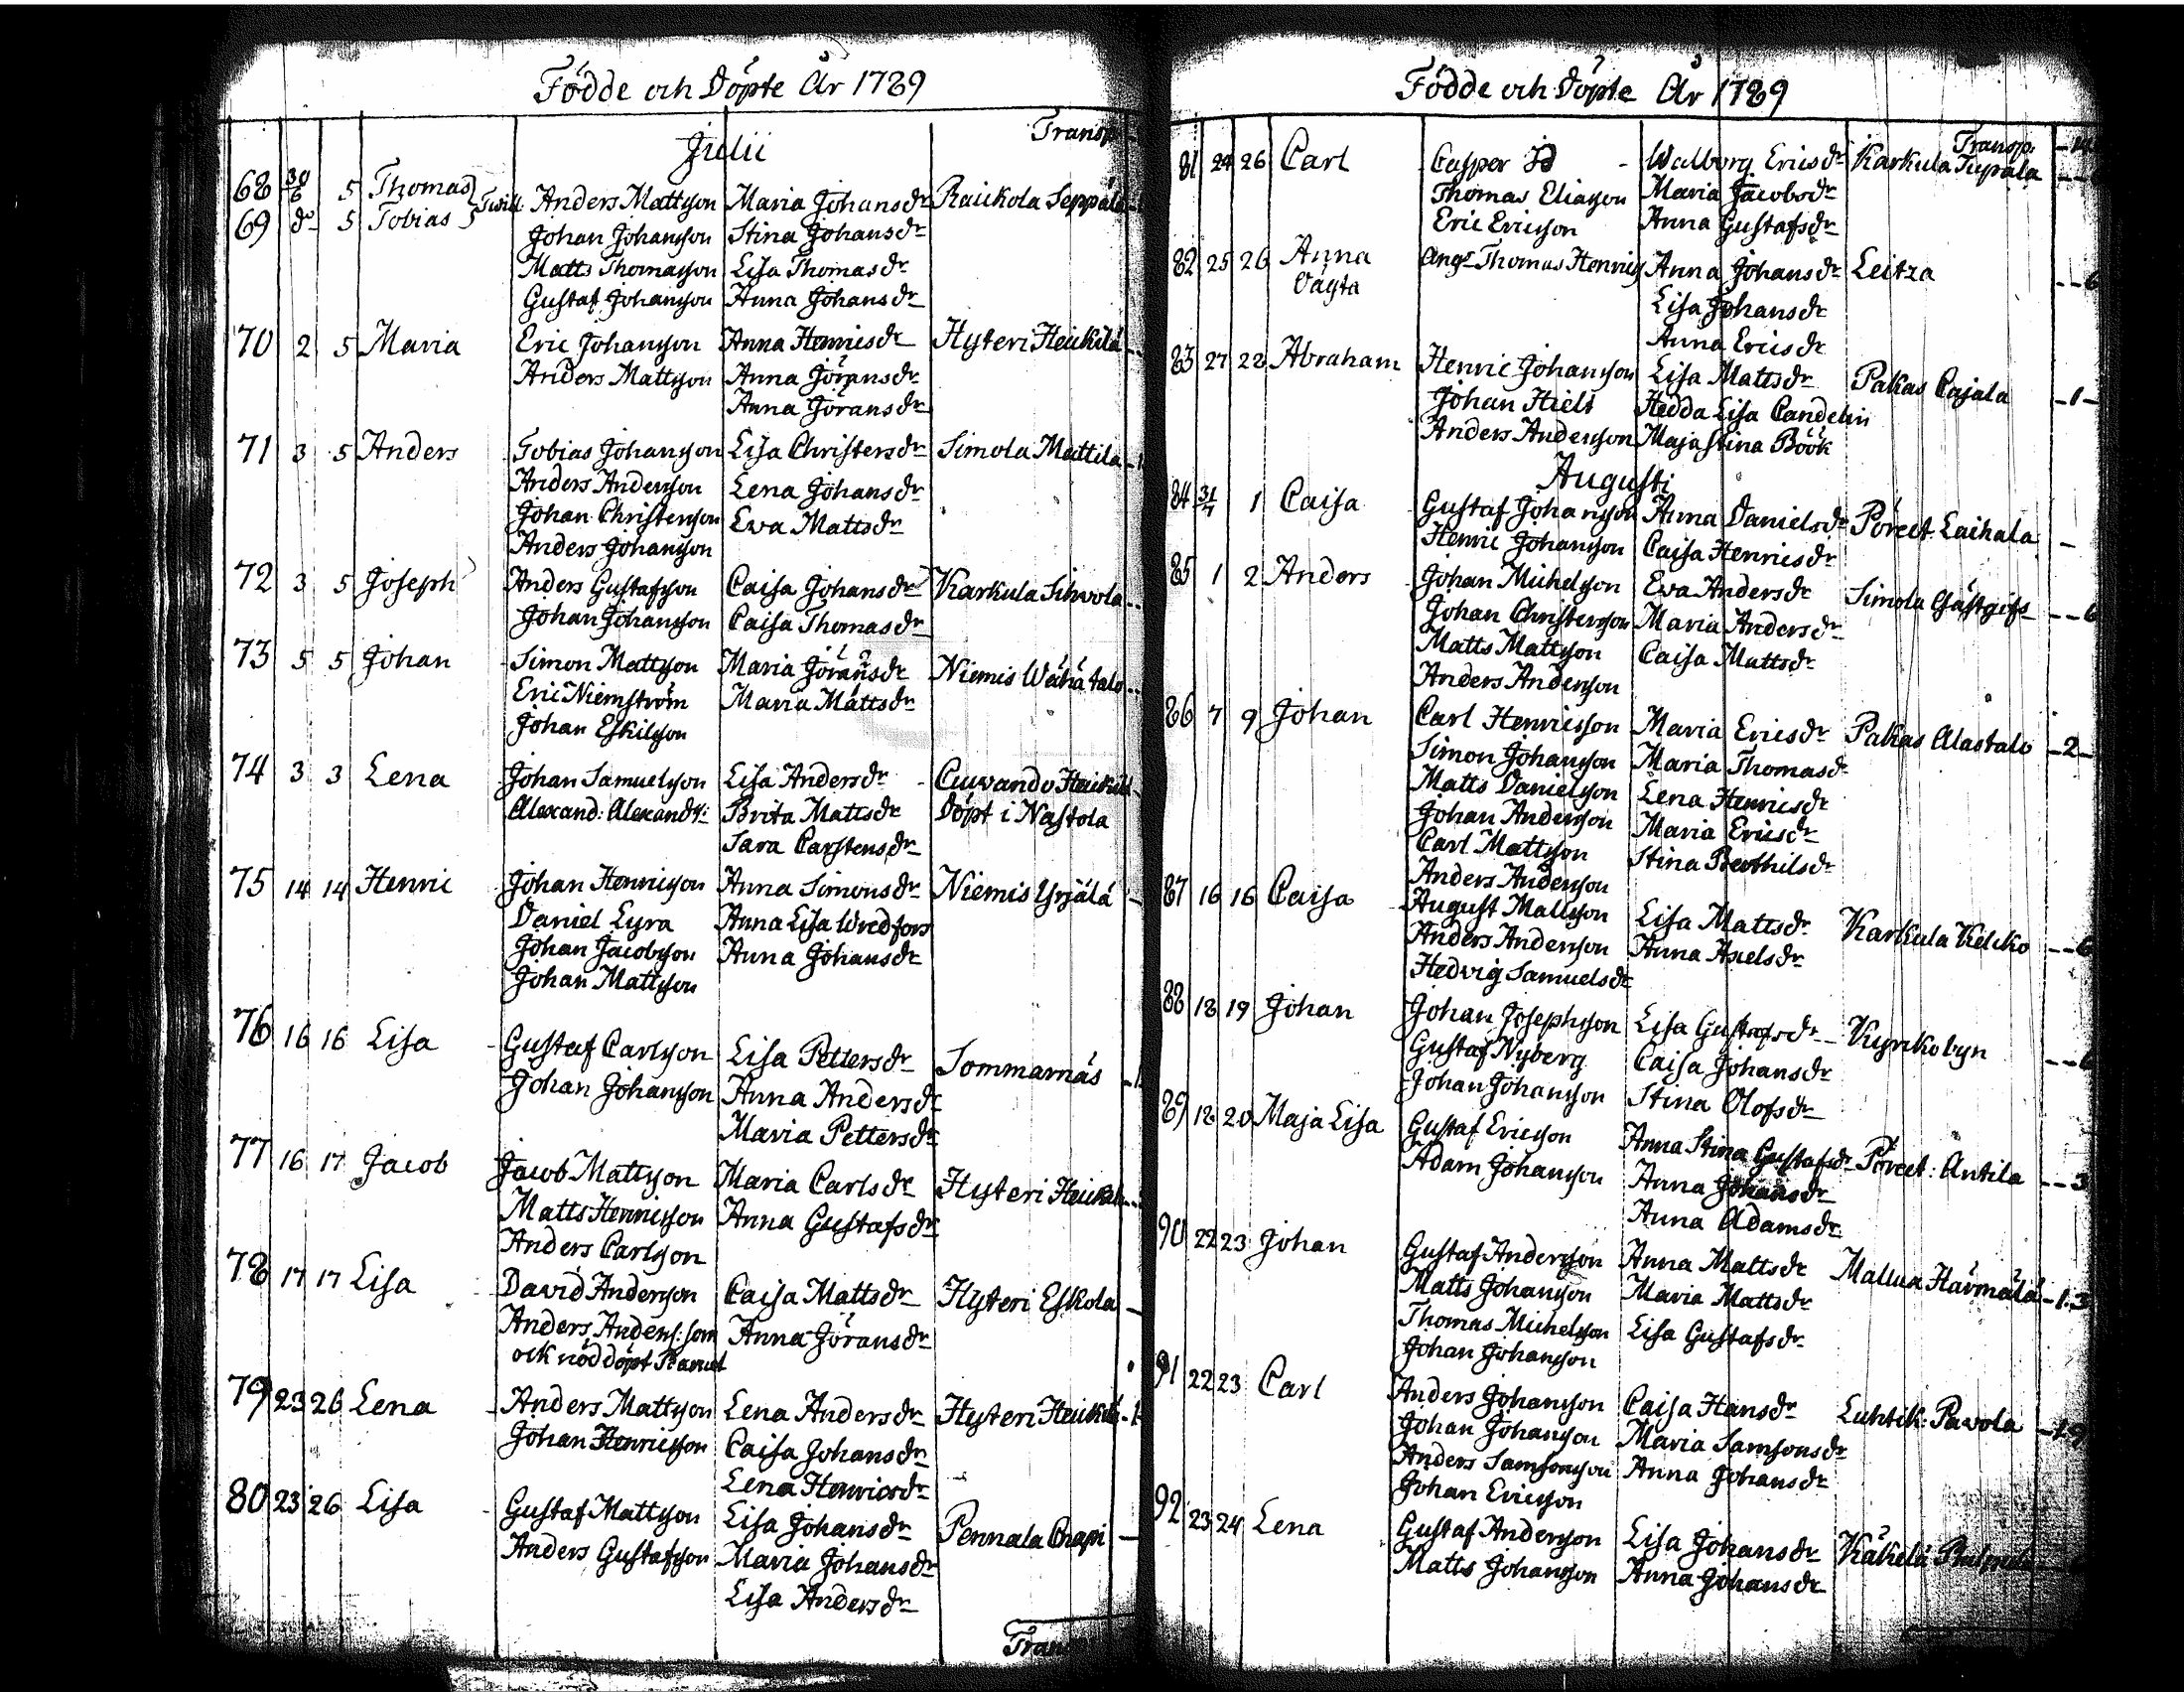 Födde och Döpte År 1789
Transp.
Julii
68 30/6 5 Thomas Twill. Anders Mattsson Maria Johansdr Raickola Seppälä
69 do 5 Tobias Johan Johansson Stina Johansdr
Matts Thomasson Lisa Thomasdr
Gustaf Johansson Anna Johansdr
70 2 5 Maria Eric Johansson Anna Henricsdr Hyteri Heickilä
Anders Mattsson Anna Göransdr
Anna Göransdr
71 3 5 Anders Tobias Johansson Lisa Christersdr Simola Mattila
Anders Andersson Lena Johansdr
Johan Christersson Eva Mattsdr
Anders Johansson
72 3 5 Joseph Anders Gustafsson Caisa Johansdr Karkula Sihvola
Johan Johansson Caisa Thomasdr
73 5 5 Johan Simon Mattsson Maria Göransdr Niemis Wähätalo
Eric Niemström Maria Mattsdr
Johan Eskilsson
74 3 3 Lena Johan Samuelsson Lisa Andersdr Cuivando Heickilä
Alexand: Alexands: Brita Mattsdr Döpt i Nastola
Sara Carstensdr
75 14 14 Henric Johan Henricsson Anna Simonsdr Niemis Yrjälä
Daniel Lyra Anna Lisa Wredfors
Johan Jacobsson Anna Johansdr
Johan Mattsson
76 16 16 Lisa Gustaf Carlsson Lisa Pettersdr Sommarnäs
Johan Johansson Anna Andersdr
Maria Pettersdr
77 16 17 Jacob Jacob Mattsson Maria Carlsdr Hyteri Heickilä
Matts Henricsson Anna Gustafsdr
Anders Carlsson
78 17 17 Lisa David Andersson Caisa Mattsdr Hyteri Eskola
Anders Anders: som Anna Göransdr
ock nöddöpt Barnet
79 23 26 Lena Anders Mattsson Lena Andersdr Hyteri Heickilä
Johan Henricsson Caisa Johansdr
Lena Henricsdr
80 23 26 Lisa Gustaf Mattsson Lisa Johansdr Pennala
Anders Gustafsson Maria Johansdr
Lisa Andersdr
Transp
Födde och Döpte År 1789
Transp.
81 24 26 Carl Casper Walborg Ericsdr Karkula Tupala
Thomas Eliasson Maria Jacobsdr
Eric Ericsson Anna Gustafsdr
82 25 26 Anna Thomas Henrics Anna Johansdr Leitza 6
Dägta Lisa Johansdr
Anna Ericsdr
83 27 28 Abraham Henric Johansson Lisa Mattsdr Pakas Cajala 1
Johan Hielt Hedda Lisa Candelin
Anders Andersson Maja Stina Böök
Augusti
84 31/7 1 Caisa Gustaf Johansson Anna Danielsdr Påreet. Laihala
Henric Johansson Caisa Henricsdr
85 1 2 Anders Johan Michelsson Eva Andersdr Simola Gästgifs 6
Johan Christersson Maria Andersdr
Matts Mattsson Caisa Mattsdr
Anders Andersson
86 7 9 Johan Carl Henricsson Maria Ericsdr Pakas Alastalo 2
Simon Johansson Maria Thomasdr
Matts Danielsson Lena Henricsdr
Johan Andersson Maria Ericsdr
Carl Mattsson Stina Berthilsdr
Anders Andersson
87 16 16 Caisa August Mattsson Lisa Mattsdr Karkula Kelcko 6
Anders Andersson Anna Axelsdr
Hedvig Samuelsdr
88 18 19 Johan Johan Josephsson Lisa Gustafsdr Kyrkobyn 6
Gustaf Nyberg Caisa Johansdr
Johan Johansson Stina Olofsdr
89 18 20 Maja Lisa Gustaf Ericsson Anna Stina Gustafsdr Påreet: Antila 3
Adam Johansson Anna Johansdr
Anna Adamsdr
90 22 23 Johan Gustaf Andersson Anna Mattsdr Mallua Härmälä 1.3
Matts Johansson Maria Mattsdr
Thomas Michelsson Lisa Gustafsdr
Johan Johansson
91 22 23 Carl Anders Johansson Caisa Hansdr Luhtik: Pavola
Johan Johansson Maria Samsonsdr
Anders Samsonsson Anna Johansdr
Johan Ericsson
92 23 24 Lena Gustaf Andersson Lisa Johansdr Käkelä
Matts Johansson Anna Johansdr